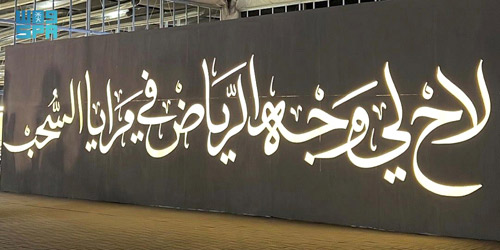 واس
SPA
لاح لي وَجْه الرّياض في مَرايا السُّحب